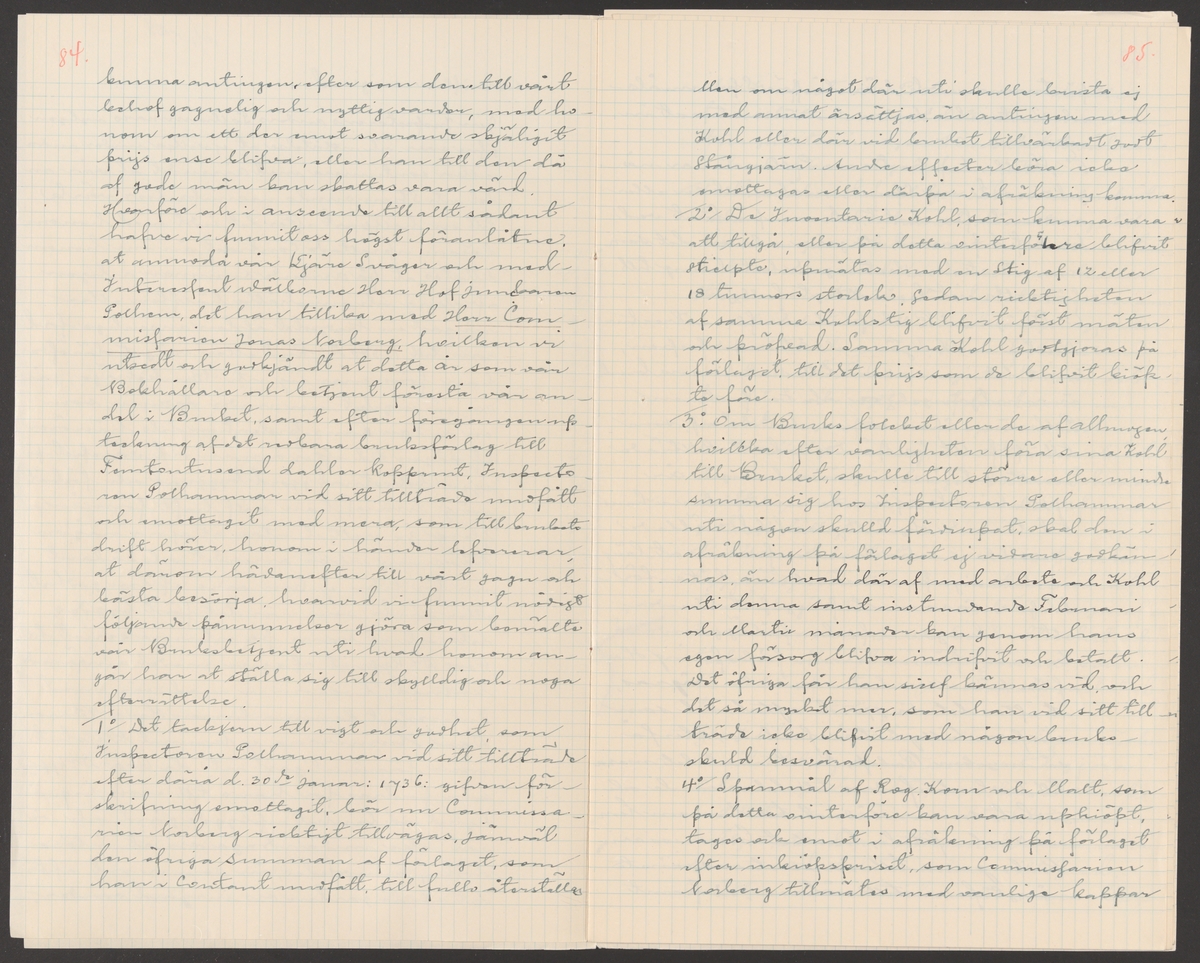 84.
kunna antingen, efter som den till vårt
behof gagnelig och nyttig varder, med ho-
nom om ett der emot svarande skjäligit
prijs ense blifva, eller han till den då
af gode män kan skattas vara värd.
Hvarföre och i anseende till allt sådant
hafve vi funnit oss högst föranlåtne,
at anmoda vår kjäre Svåger och med-
Interessent wälborne Herr Hofjunkaren
Polhem, det han tillika med Herr Com-
missarien Jonas Norberg, hvilken vi
utsedt och godkjändt at detta år som vår
Bokhållare och betjent förestå vår an-
del i Bruket, samt efter föregången up-
teckning af det redbara bruksförlag till
Femtontusend dahler kopprmt, Inspecto-
ren Polhammar vid sitt tillträde undfått
och emottagit med mera, som till brukets
drift hörer, honom i händer lefvererar,
at därom hädanefter till vårt gagn och
bästa besörja, hvarvid vi funnit nödigt
följande påminnelser gjöra som bemälte
vår Bruksbetjent uti hvad honom an-
går har at ställa sig till skyldig och noga
efterrättelse.
1° Det tackjern till vigt och godhet, som
Inspectoren Polhammar vid sitt tillträde
efter därå d. 30de janar: 1736: gifven för-
skrifning emottagit, bör nu Commissa-
rien Norberg ricktigt tillvägas, jämväl
den öfriga summan af förlaget, som
han i Contant undfått, till fullo återställas
85.
llen om något där uti skulle brista ej
med annat ärsättjas, än antingen med
Kohl eller där vid bruket tillvärkadt godt
Stångjärn. Andre effecter böra icke
emottagas eller därpå i afräkning komma.
2° De Inventarie Kohl, som kunna vara
att tillgå, eller på detta vinterföhre blifvit
stielpte, upmätas med en Stig af 12 eller
18 tunnors storlek, sedan ricktigheten
af samme Kohlstig blifvit först mäten
och pröfvad. Samma Kohl godtgjöras på
förlaget, till det prijs som de blifvit kiöp-
te före.
3° Om Bruks folcket eller de af allmogen,
hvilcka efter vanligheten föra sina Kohl
till Bruket, skulle till större eller mindre
summa sig hos Inspectoren Polhammar
uti någon skulld fördiupat, skal den i
afräkning på förlaget ej vidare godkän-
nas, än hvad där af med arbete och Kohl
uti denna samt instundande Februari
och Martii månader kan genom hans
egen försorg blifva indrifvit och betalt.
Det öfriga får han sielf kännas vid, och
det så mycket mer, som han vid sitt till-
träde icke blifvit med någon bruks-
skuld besvärad.
4° Spanmål af Rog, Korn och Malt, som
på detta vinterföre kan vara uphiöpt,
tages och emot i afräkning på förlaget
efter inkiöpspriset, som Commissarien
Norberg tillmätes med vanlige kappar